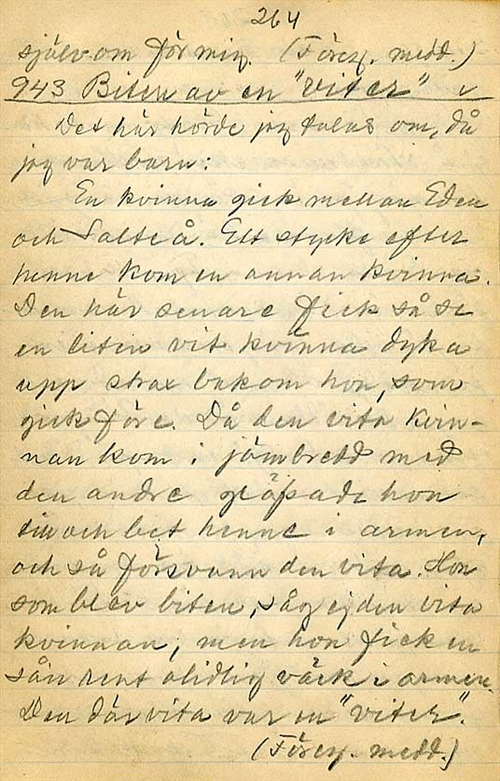 264
själv om för mig. (Föreg. medd.)
943 Biten av en "viter"
Det här hörde jag talas om, då
jag var barn:
En kvinna gick mellan Eden
och Salteå. Ett stycke efter
henne kom en annan kvinna.
Den här senare fick så se
en liten vit kvinna dyka
upp strax bakom hon, som
gick före. Då den vita kvin-
nan kom i jämbredd med
den andre gläfsade hon
till och bet henne i armen,
och så försvann den vita. Hon
som blev biten, såg ej den vita
kvinnan, men hon fick en
sån rent olidlig värk i armen.
Den där vita var en "viter".
(Föreg. medd.)